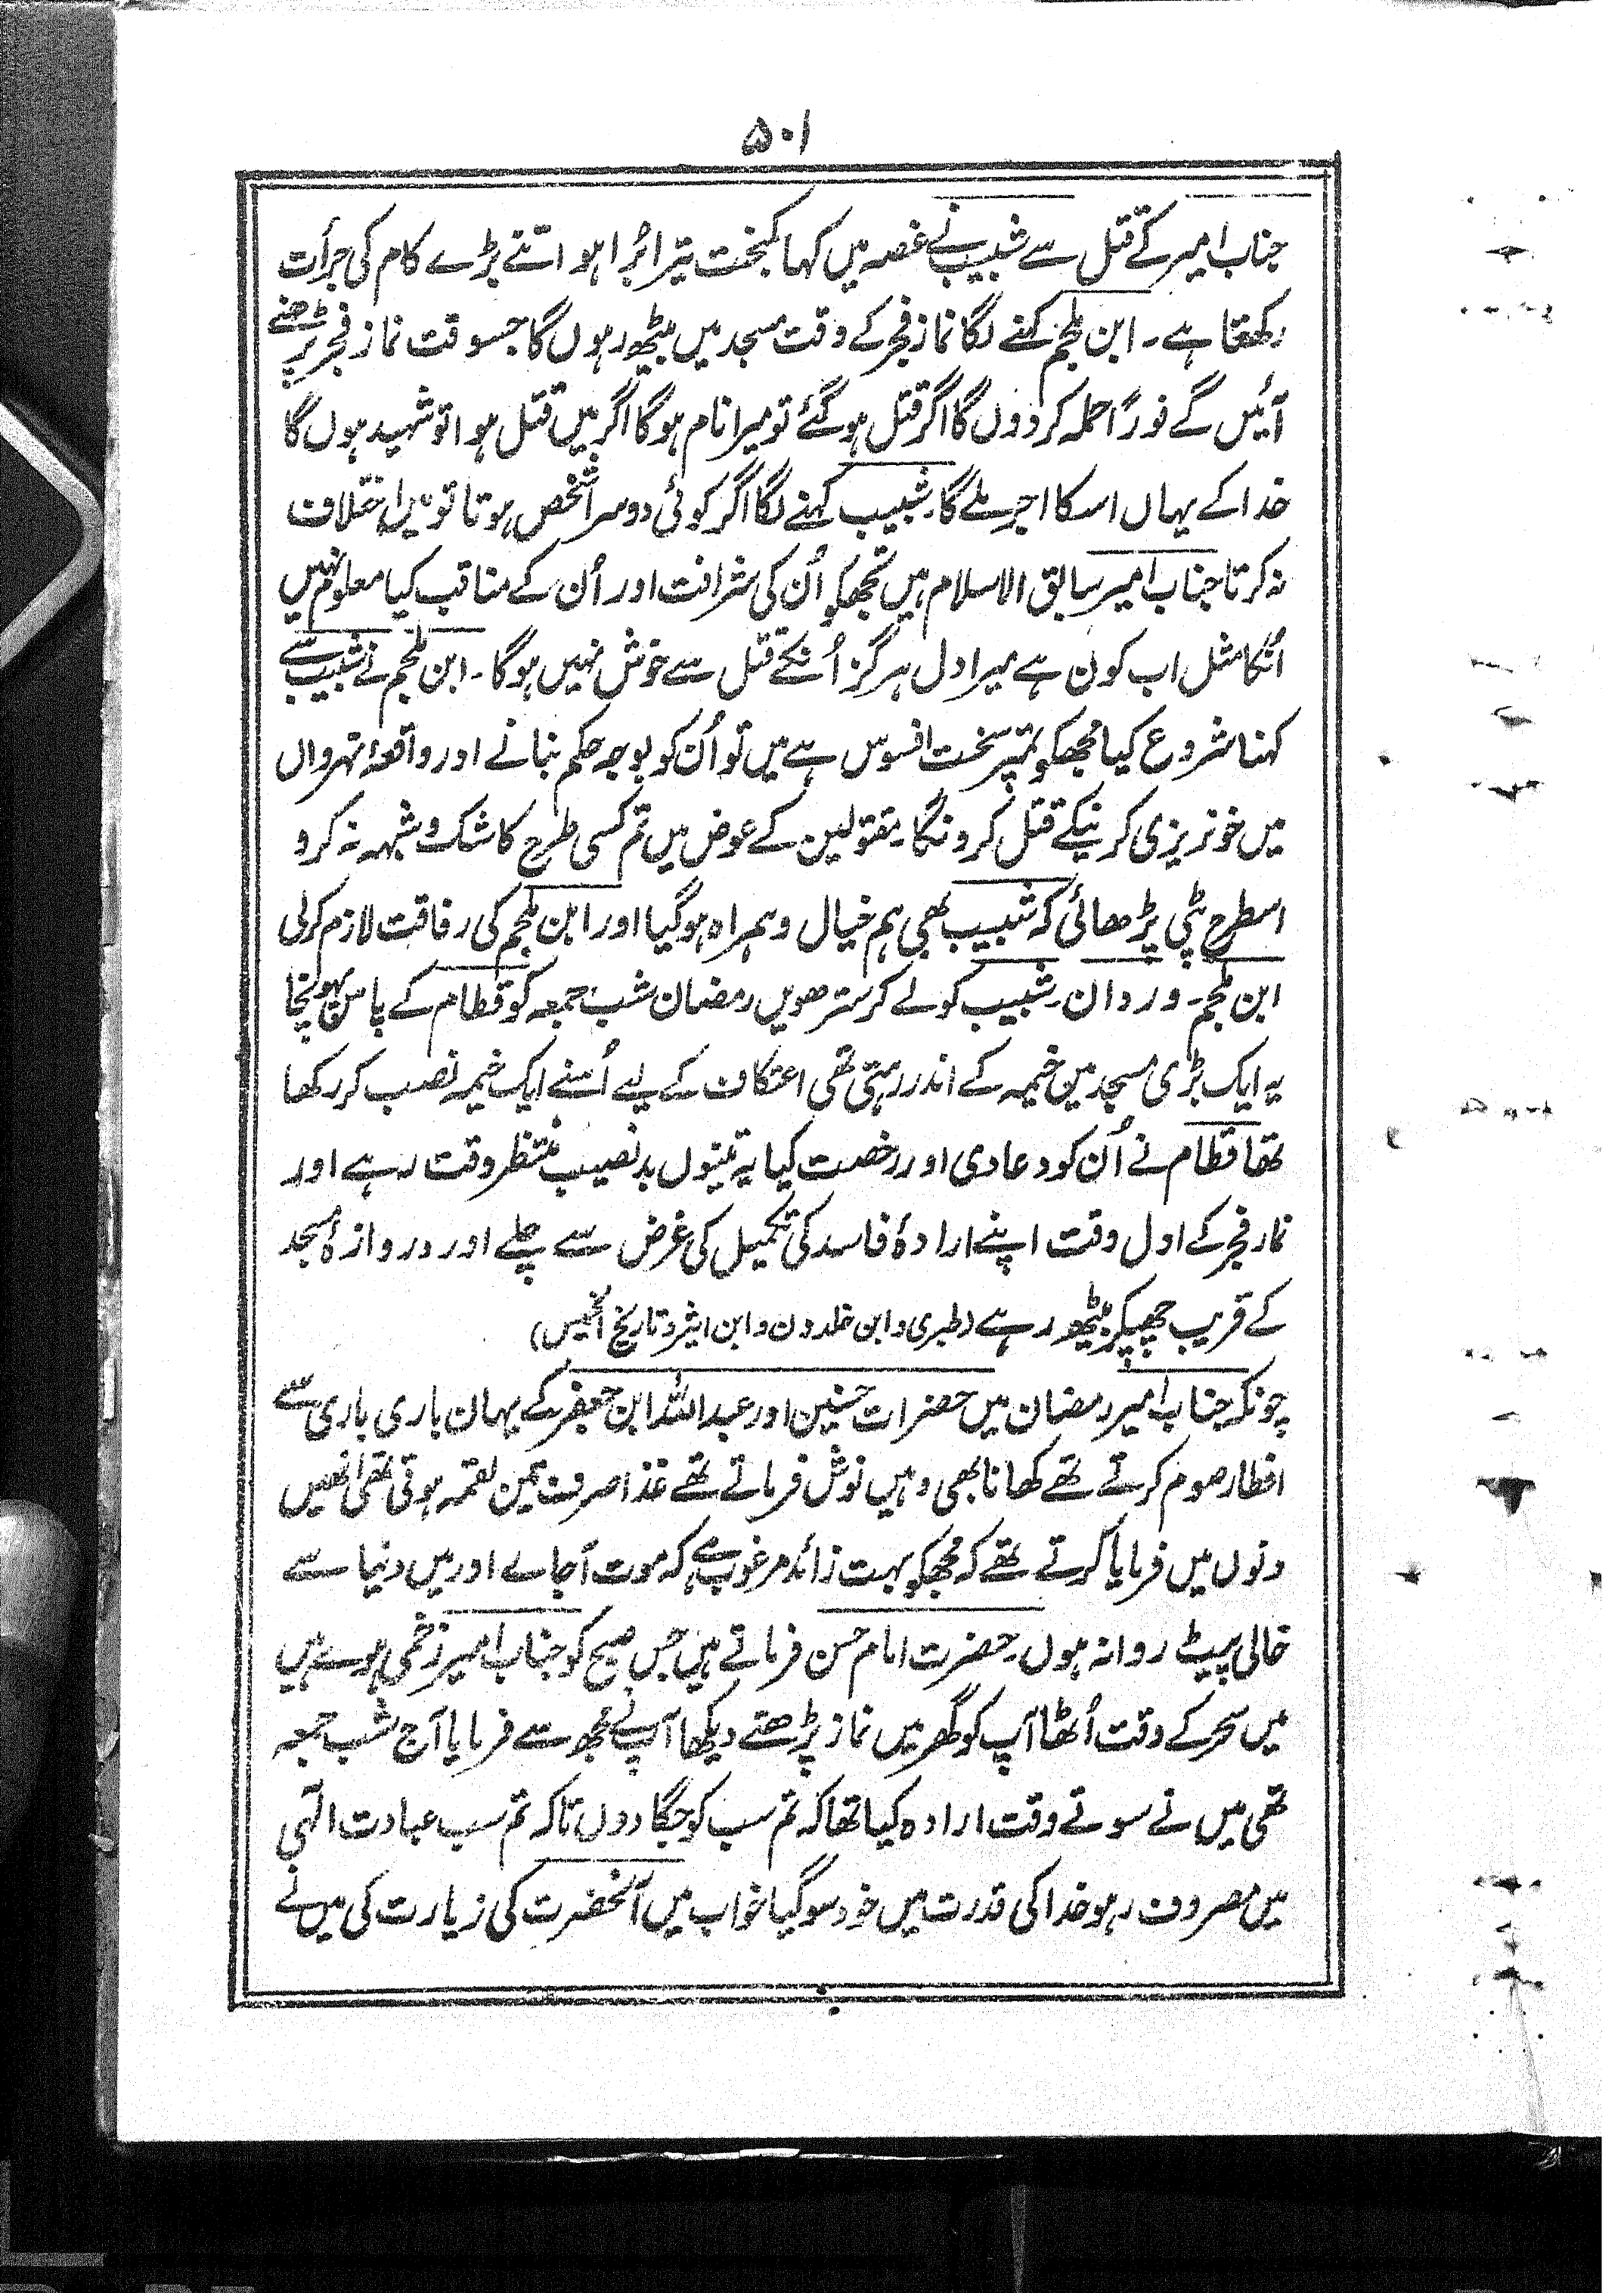 ۵۰۱
جناب امیر کے قتل سے شبیب نے غصہ میں کہا کمبخت تیرا بُرا ہو اتنے بڑے کام کی جرأت
رکھتا ہے۔ ابن ملجم کہنے لگا نماز فجر کے وقت مسجد میں بیٹھ رہوں گا جسوقت نماز فجر پڑھنے
آئیں گے فوراً حملہ کر دوں گا اگر قتل ہو گئے تو میرا نام ہو گا اگر میں قتل ہوا تو شہید ہوں گا
خدا کے یہاں اسکا اجر ملے گا۔ شبیب کہنے لگا اگر کوئی دوسرا شخص ہوتا تو میں اختلاف
نہ کرتا جناب امیر سابق الاسلام ہیں تجھکو اُن کی شرافت اور اُن کے مناقب کیا معلوم نہیں
اُنکا مثل اب کون ہے میرا دل ہرگز اُنکے قتل سے خوش نہیں ہوگا۔ ابن ملجم نے شبیب سے
کہنا شروع کیا مجھکو تمپر سخت افسوس ہے میں تو اُن کو بوجہ حکم بنانے اور واقعۂ نہرواں
میں خونریزی کرنیکے قتل کرونگا۔ مقتولین کے عوض میں تم کسی طرح کا شک و شبہہ نہ کرو
اسطرح پٹی پڑھائی کہ شبیب بھی ہم خیال و ہمراہ ہو گیا اور ابن ملجم کی رفاقت لازم کر لی
ابن ملجم۔ وردان۔ شبیب کو لے کر سترھویں رمضان شب جمعہ کو قطام کے پاس پہونچا
یہ ایک بڑی مسجد مین خیمہ کے اندر رہتی تھی اعتکاف کے لیے اُسنے ایک خیمہ نصب کر رکھا
تھا قطام نے اُن کو دعا دی اور رخصت کیا یہ تینوں بد نصیب منتظر وقت رہے اور
نماز فجر کے اول وقت اپنے ارادۂ فاسد کی تکمیل کی غرض سے چلے اور دروازۂ مسجد
کے قریب چھپکر بیٹھ رہے (طبری و ابن خلدون و ابن اثیر و تاریخ الخمیس)
چونکہ جناب امیر رمضان میں حضرات حسنین اور عبداللہ ابن جعفر کے یہان باری باری سے
افطار صوم کرتے تھے کھانا بھی وہیں نوش فرماتے تھے غذا صرف تین لقمہ ہوتی تھی انھیں
دنوں میں فرمایا کرتے تھے کہ مجھکو بہت زائد مرغوب ہے کہ موت آجاے اور میں دنیا سے
خالی پیٹ روانہ ہوں۔ حضرت امام حسن فرماتے ہیں جس صبح کو جناب امیر زخمی ہوے ہیں
میں سحر کے وقت اُٹھا آپ کو گھر میں نماز پڑھتے دیکھا آپ نے مجھ سے فرمایا آج شب جمعہ
تھی میں نے سوتے وقت ارادہ کیا تھا کہ تم سب کو جگا دوں تاکہ تم سب عبادت الٰہی
میں مصروف رہو خدا کی قدرت میں خود سو گیا خواب میں آنحضرت کی زیارت کی میں نے